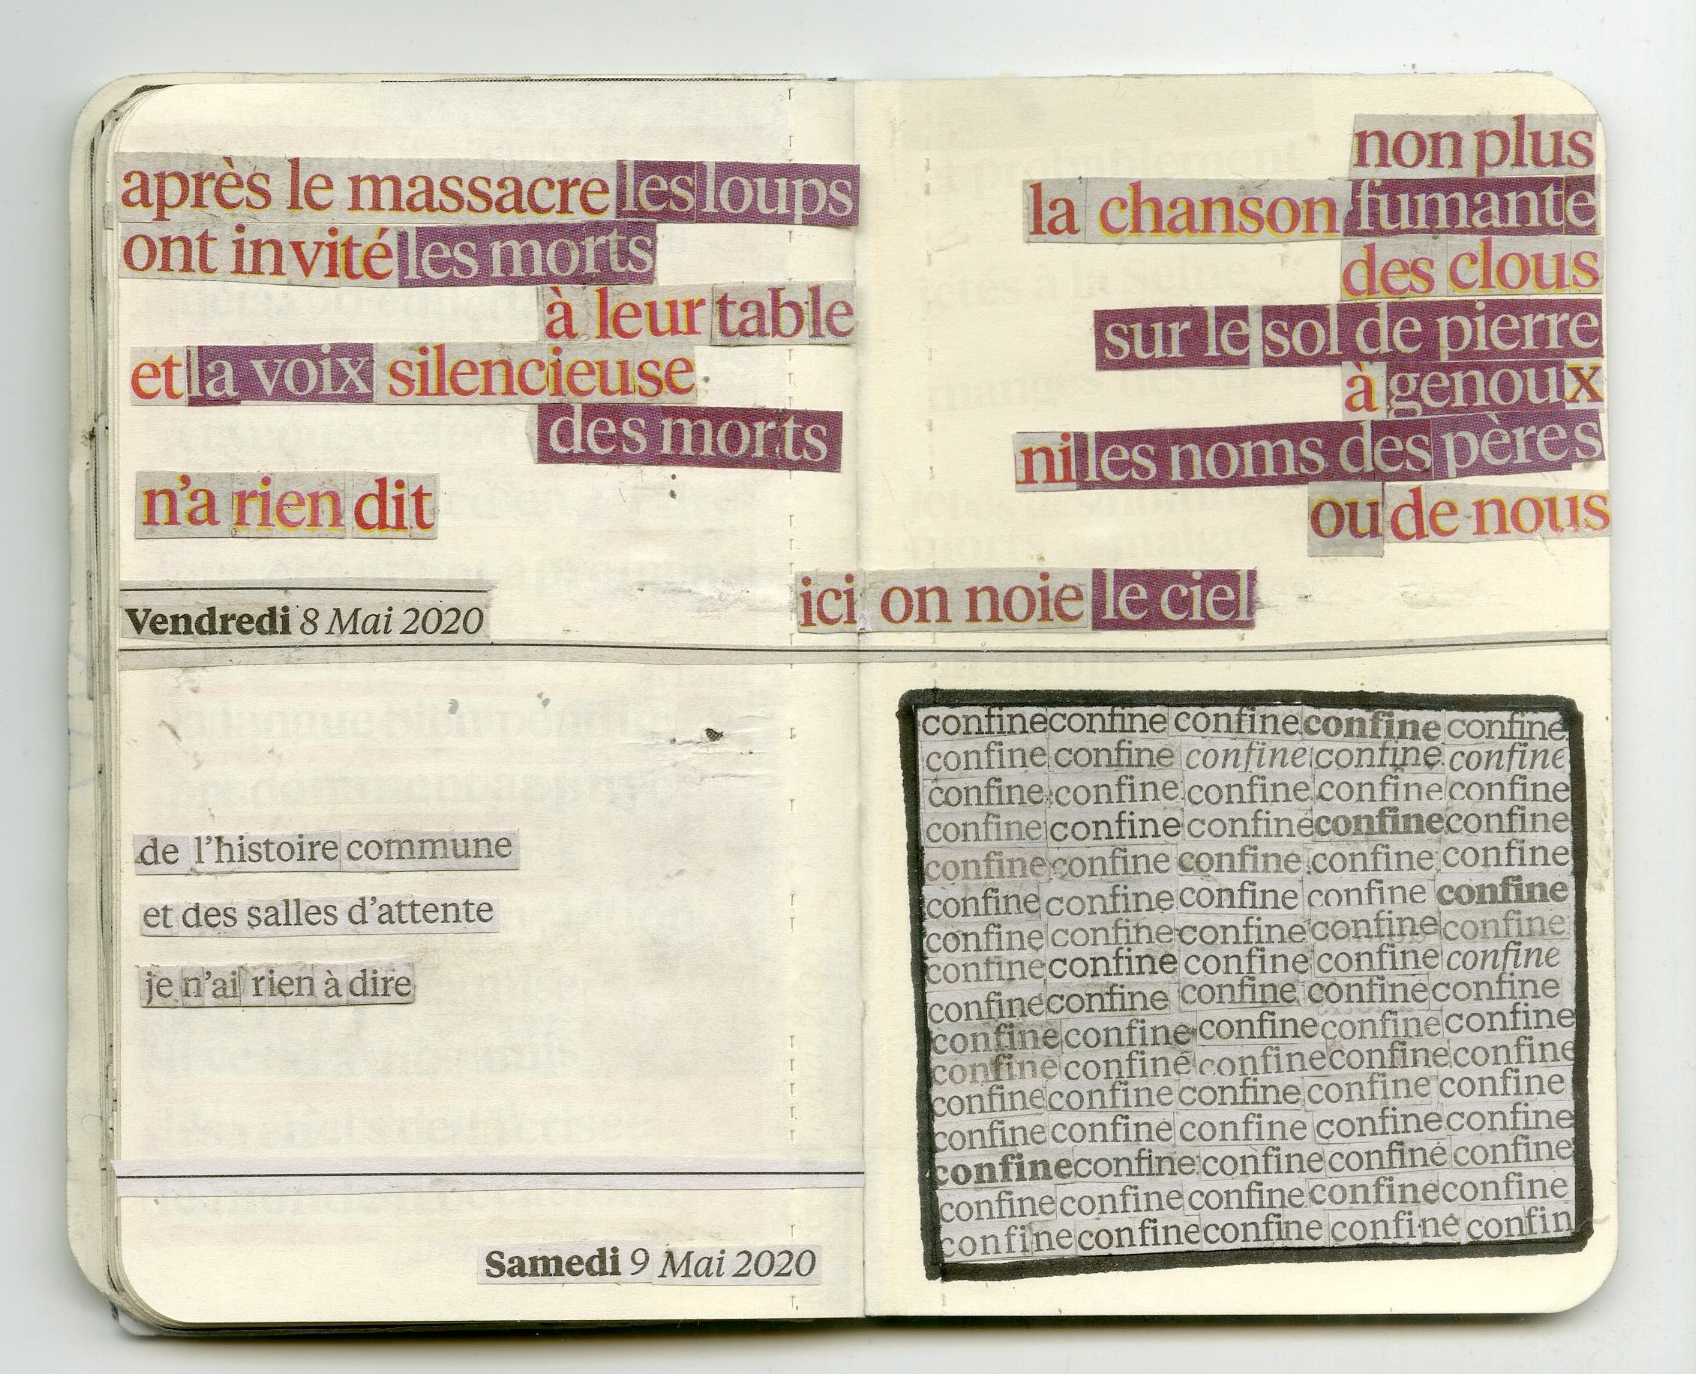 après le massacre les loups
ont invité les morts
à leur table
et la voix silencieuse
des morts
n'a rien dit
non plus
la chanson fumante
des clous
sur le sol de pierre
à genoux
ni les noms des pères
ou de nous
ici on noie le ciel
Vendredi 8 Mai 2020
de l'histoire commune
et des salles d'attente
je n'ai rien à dire
Samedi 9 Mai 2020
confine confine confine confine confine
confine confine confine confine confine
confine confine confine confine confine
confine confine confine confine confine
confine confine confine confine confine
confine confine confine confine confine
confine confine confine confine confine
confine confine confine confine confine
confine confine confine confine confine
confine confine confine confine confine
confine confine confine confine confine
confine confine confine confine confine
confine confine confine confine confine
confine confine confine confiné confine
confine confine confine confine confine
confine confine confine confiné confin